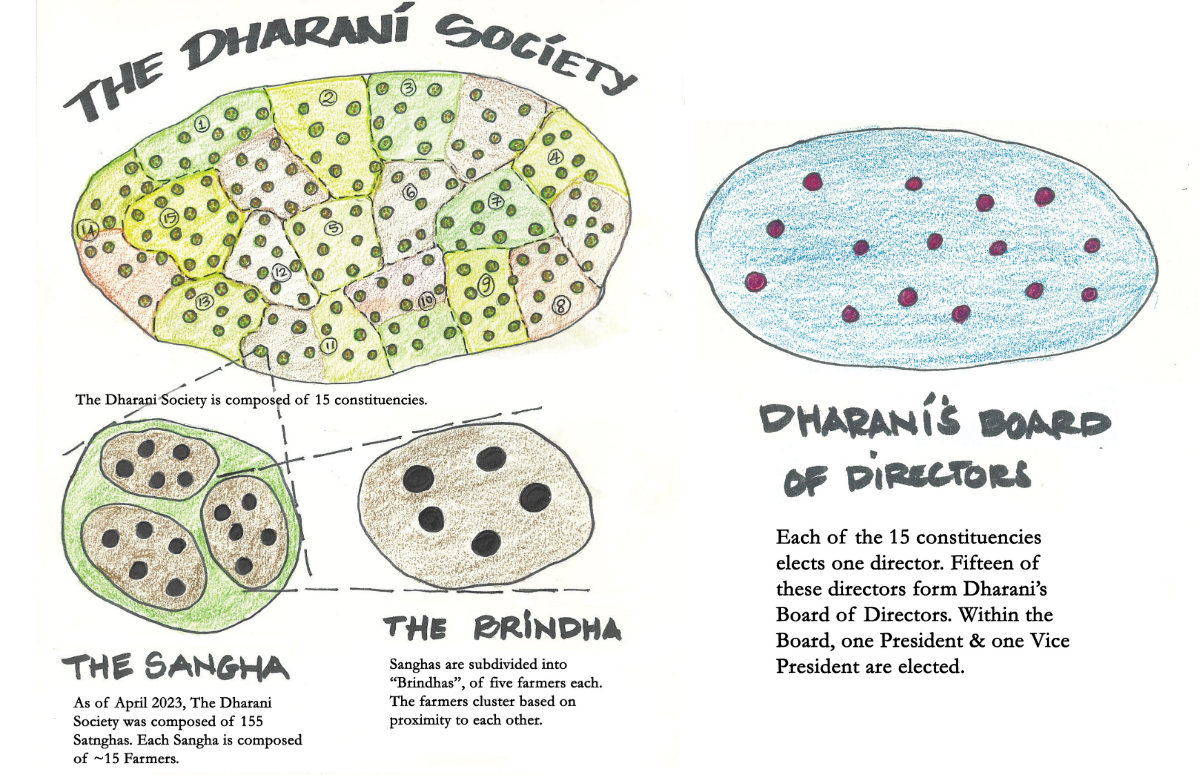 THE DHARANÍ SOCÍETY
1
2
3
4
5
6
7
8
9
10
11
12
13
14
15
The Dharani Society is composed of 15 constituencies.
THE SANGHA
As of April 2023, The Dharani
Society was composed of 155
Satnghas. Each Sangha is composed
of ~15 Farmers.
THE BRÍNDHA
Sanghas are subdivided into
“Brindhas”, of five farmers each.
The farmers cluster based on
proximity to each other.
DHARANÍ'S BOARD
OF DÍRECTORS
Each of the 15 constituencies
elects one director. Fifteen of
these directors form Dharani’s
Board of Directors. Within the
Board, one President & one Vice
President are elected.